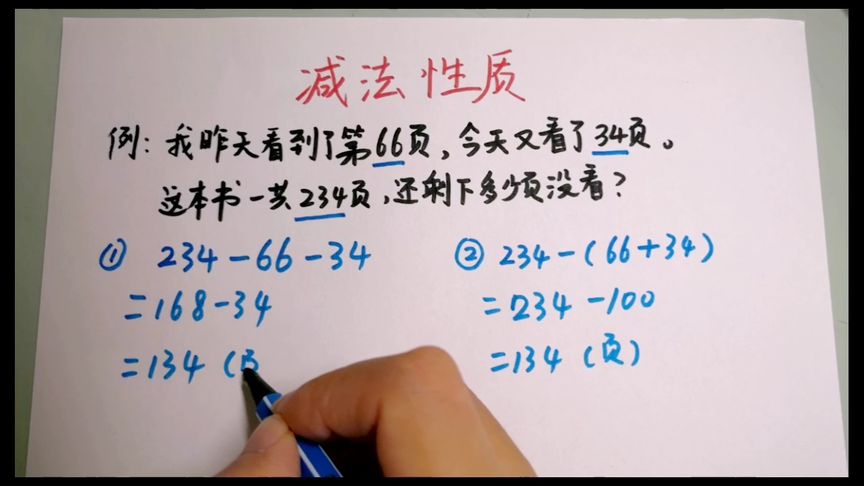 减法性质
例：我昨天看到了第66页，今天又看了34页。
这本书一共234页，还剩下多少页没看？
① 234-66-34
=168-34
=134（页
② 234-(66+34)
=234-100
=134（页）